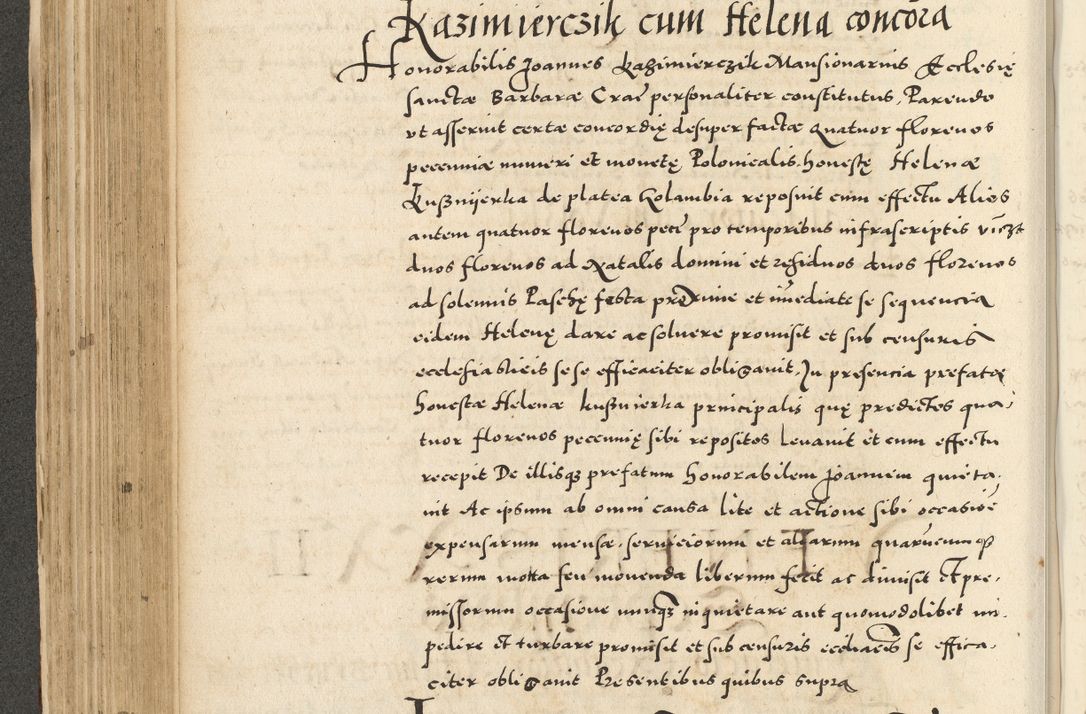 Kazimierczik cum Helena concora
Honorabilis Joannes Kazimierczik Mansionarius Ecclesię
sanctæ Barbaræ Crac̄ personaliter constitutus, Parendo
ut asseruit certæ concordię desuper factæ quatuor florenos
pecunniæ numeri et monetę Polonicalis. honestę Helenæ
Kuszniierka de platea Golambia reposuit cum effectu Alios
autem quatuor florenos pecc̄ pro temporibus infrascriptis vic̄zt
duos florenos ad Natalis domini et residuos duos florenos
ad solennis Paschę festa proxime et im̄ediate se sequencia
eidem Helenę dare ac solvere promisit et sub censuris
ecclesiasticis sese efficaciter obligavit. In presencia prefatæ
honestæ Helenæ kusznierka principalis quę predictos qua-
tuor florenos pecunnię sibi repositos levavit et cum effectu
recepit De illisq3 prefatum honorabilem Joannem quieta-
vit Ac ipsum ab omni causa lite et actione sibi occasioē
expensarum mensæ. serviciorum et aliarum quarūcumq3
rerum motta seu movenda liberum fecit ac dimisit Et pre-
missorum occasione nunq3 inquietare aut quomodolibet im-
pedire et turbare promisit et sub censuris eccliacis se effica-
citer obligavit Presentibus quibus supra